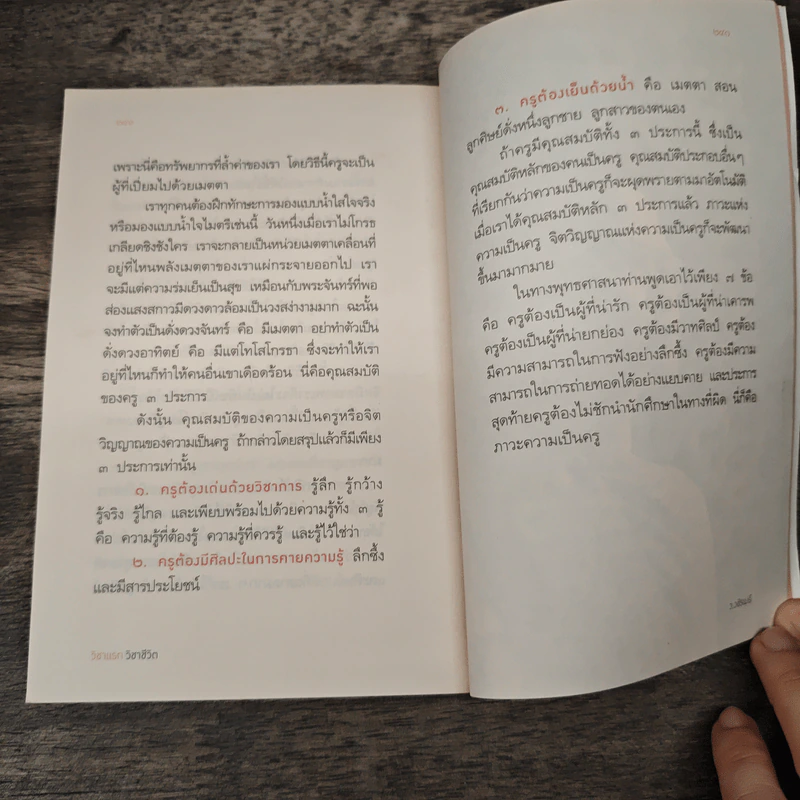 เพราะนี่คือทรัพยากรที่ล้ำค่าของเรา โดยวิธีนี้ครูจะเป็น
ผู้ที่เปี่ยมไปด้วยเมตตา
เราทุกคนต้องฝึกทักษะการมองแบบน้ำใสใจจริง
หรือมองแบบน้ำใจไมตรีเช่นนี้ วันหนึ่งเมื่อเราไม่โกรธ
เกลียดชิงชังใคร เราจะกลายเป็นหน่วยเมตตาเคลื่อนที่
อยู่ที่ไหนพลังเมตตาของเราแผ่กระจายออกไป เรา
จะมีแต่ความร่มเย็นเป็นสุข เหมือนกับพระจันทร์ที่พอ
ส่องแสงสกาวมีดวงดาวล้อมเป็นวงสง่างามมาก ฉะนั้น
จงทำตัวเป็นดั่งดวงจันทร์ คือ มีเมตตา อย่าทำตัวเป็น
ดั่งดวงอาทิตย์ คือ มีแต่โทโสโกรธา ซึ่งจะทำให้เรา
อยู่ที่ไหนก็ทำให้คนอื่นเขาเดือดร้อน นี่คือคุณสมบัติ
ของครู ๓ ประการ
ดังนั้น คุณสมบัติของความเป็นครูหรือจิต
วิญญาณของความเป็นครู ถ้ากล่าวโดยสรุปแล้วก็มีเพียง
๓ ประการเท่านั้น
๑. ครูต้องเด่นด้วยวิชาการ รู้ลึก รู้กว้าง
รู้จริง รู้ไกล และเพียบพร้อมไปด้วยความรู้ทั้ง ๓ รู้
คือ ความรู้ที่ต้องรู้ ความรู้ที่ควรรู้ และรู้ไว้ใช่ว่า
๒. ครูต้องมีศิลปะในการคายความรู้ ลึกซึ้ง
และมีสารประโยชน์
วิชาแรก วิชาชีวิต
๓. ครูต้องเย็นด้วยน้ำ คือ เมตตา สอน
ลูกศิษย์ดั่งหนึ่งลูกชาย ลูกสาวของตนเอง
ถ้าครูมีคุณสมบัติทั้ง ๓ ประการนี้ ซึ่งเป็น
คุณสมบัติหลักของคนเป็นครู คุณสมบัติประกอบอื่นๆ
ที่เรียกกันว่าความเป็นครูก็จะผุดพรายตามมาอัตโนมัติ
เมื่อเราได้คุณสมบัติหลัก ๓ ประการแล้ว ภาวะแห่ง
ความเป็นครู จิตวิญญาณแห่งความเป็นครูก็จะพัฒนา
ขึ้นมามากมาย
ในทางพุทธศาสนาท่านพูดเอาไว้เพียง ๗ ข้อ
คือ ครูต้องเป็นผู้ที่น่ารัก ครูต้องเป็นผู้ที่น่าเคารพ
ครูต้องเป็นผู้ที่น่ายกย่อง ครูต้องมีวาทศิลป์ ครูต้อง
มีความสามารถในการฟังอย่างลึกซึ้ง ครูต้องมีความ
สามารถในการถ่ายทอดได้อย่างแยบคาย และประการ
สุดท้ายครูต้องไม่ชักนำนักศึกษาในทางที่ผิด นี่ก็คือ
ภาวะความเป็นครู
ว.วชิรเมธี